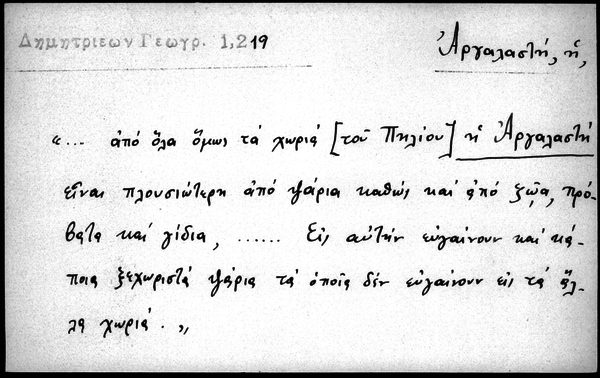 Δημητριεων Γεωγρ. 1,219
Ἀργαλαστή, ἡ,
«... ἀπό ὅλα ὅμως τά χωριά [τοῦ Πηλίου] ἡ Ἀργαλαστή
εἶναι πλουσιώτερη ἀπό ψάρια καθώς καί ἀπό ζῷα, πρό-
βατα καί γίδια, ...... Εἰς αὐτήν εὐγαίνουν καί κά-
ποια ξεχωριστά ψάρια τά ὁποῖα δέν εὐγαίνουν εἰς τά ἄλ-
λα χωριά. »